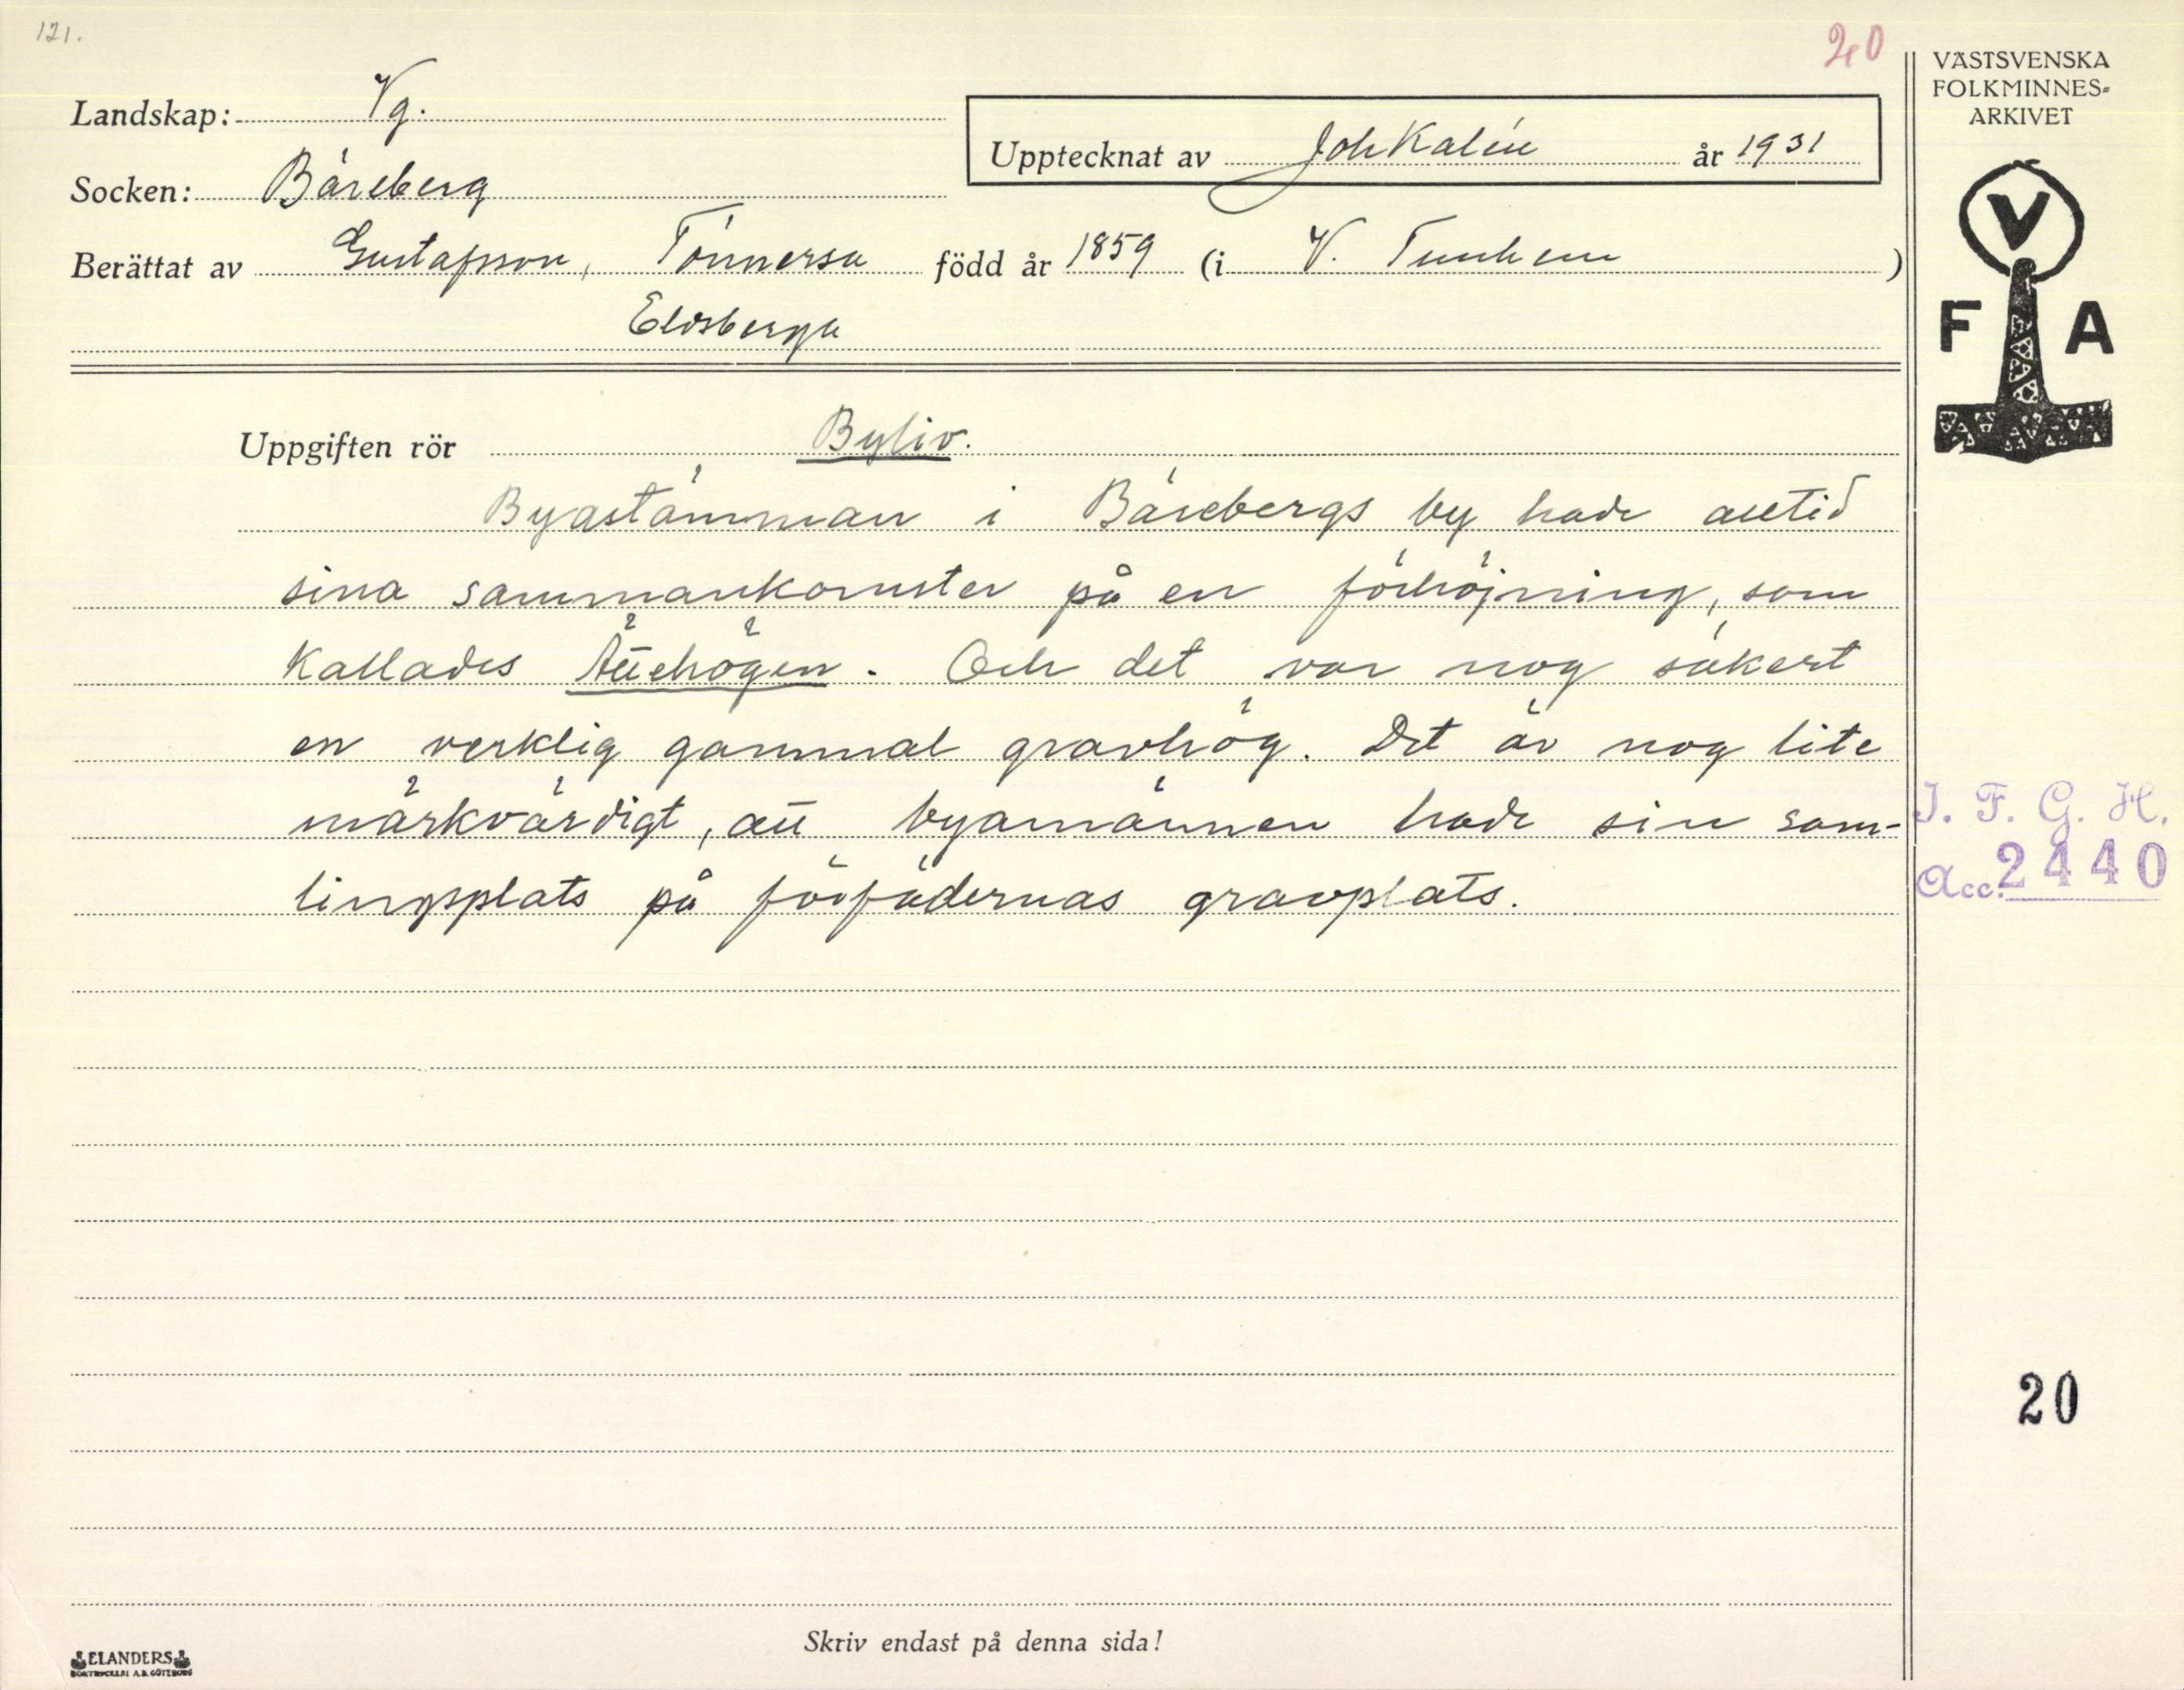 121.
20
VÄSTSVENSKA
FOLKMINNES-
ARKIVET
Landskap: Vg.
Upptecknat av Joh Kalén år 1931
Socken: Bäreberg
Berättat av Gustafsson, Tönnersa född år 1859 (i V. Tunhem)
Eldsberga
V
F A
Uppgiften rör Byliv.
Byastämman i Bärebergs by hade alltid
sina sammankomster på en förhöjning, som
kallades Ättehögen. Och det var nog säkert
en verklig gammal gravhög. Det är nog lite
märkvärdigt, att byamännen hade sin sam-
lingsplats på förfädernas gravplats.
I. F. G. H.
Acc. 2440
20
Skriv endast på denna sida!
ELANDERS
BOKTRYCKERI A.B. GÖTEBORG